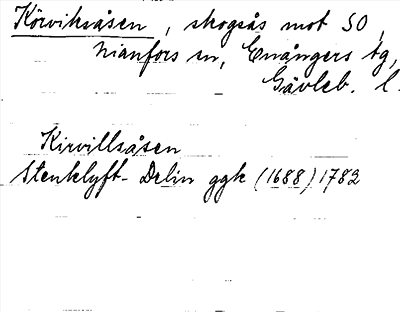 Körviksåsen, skogsås mot SO,
Nianfors sn, Enångers tg,
Gävleb. l.
Kirvillsåsen
Stenklyft- Delin ggk (1688) 1782